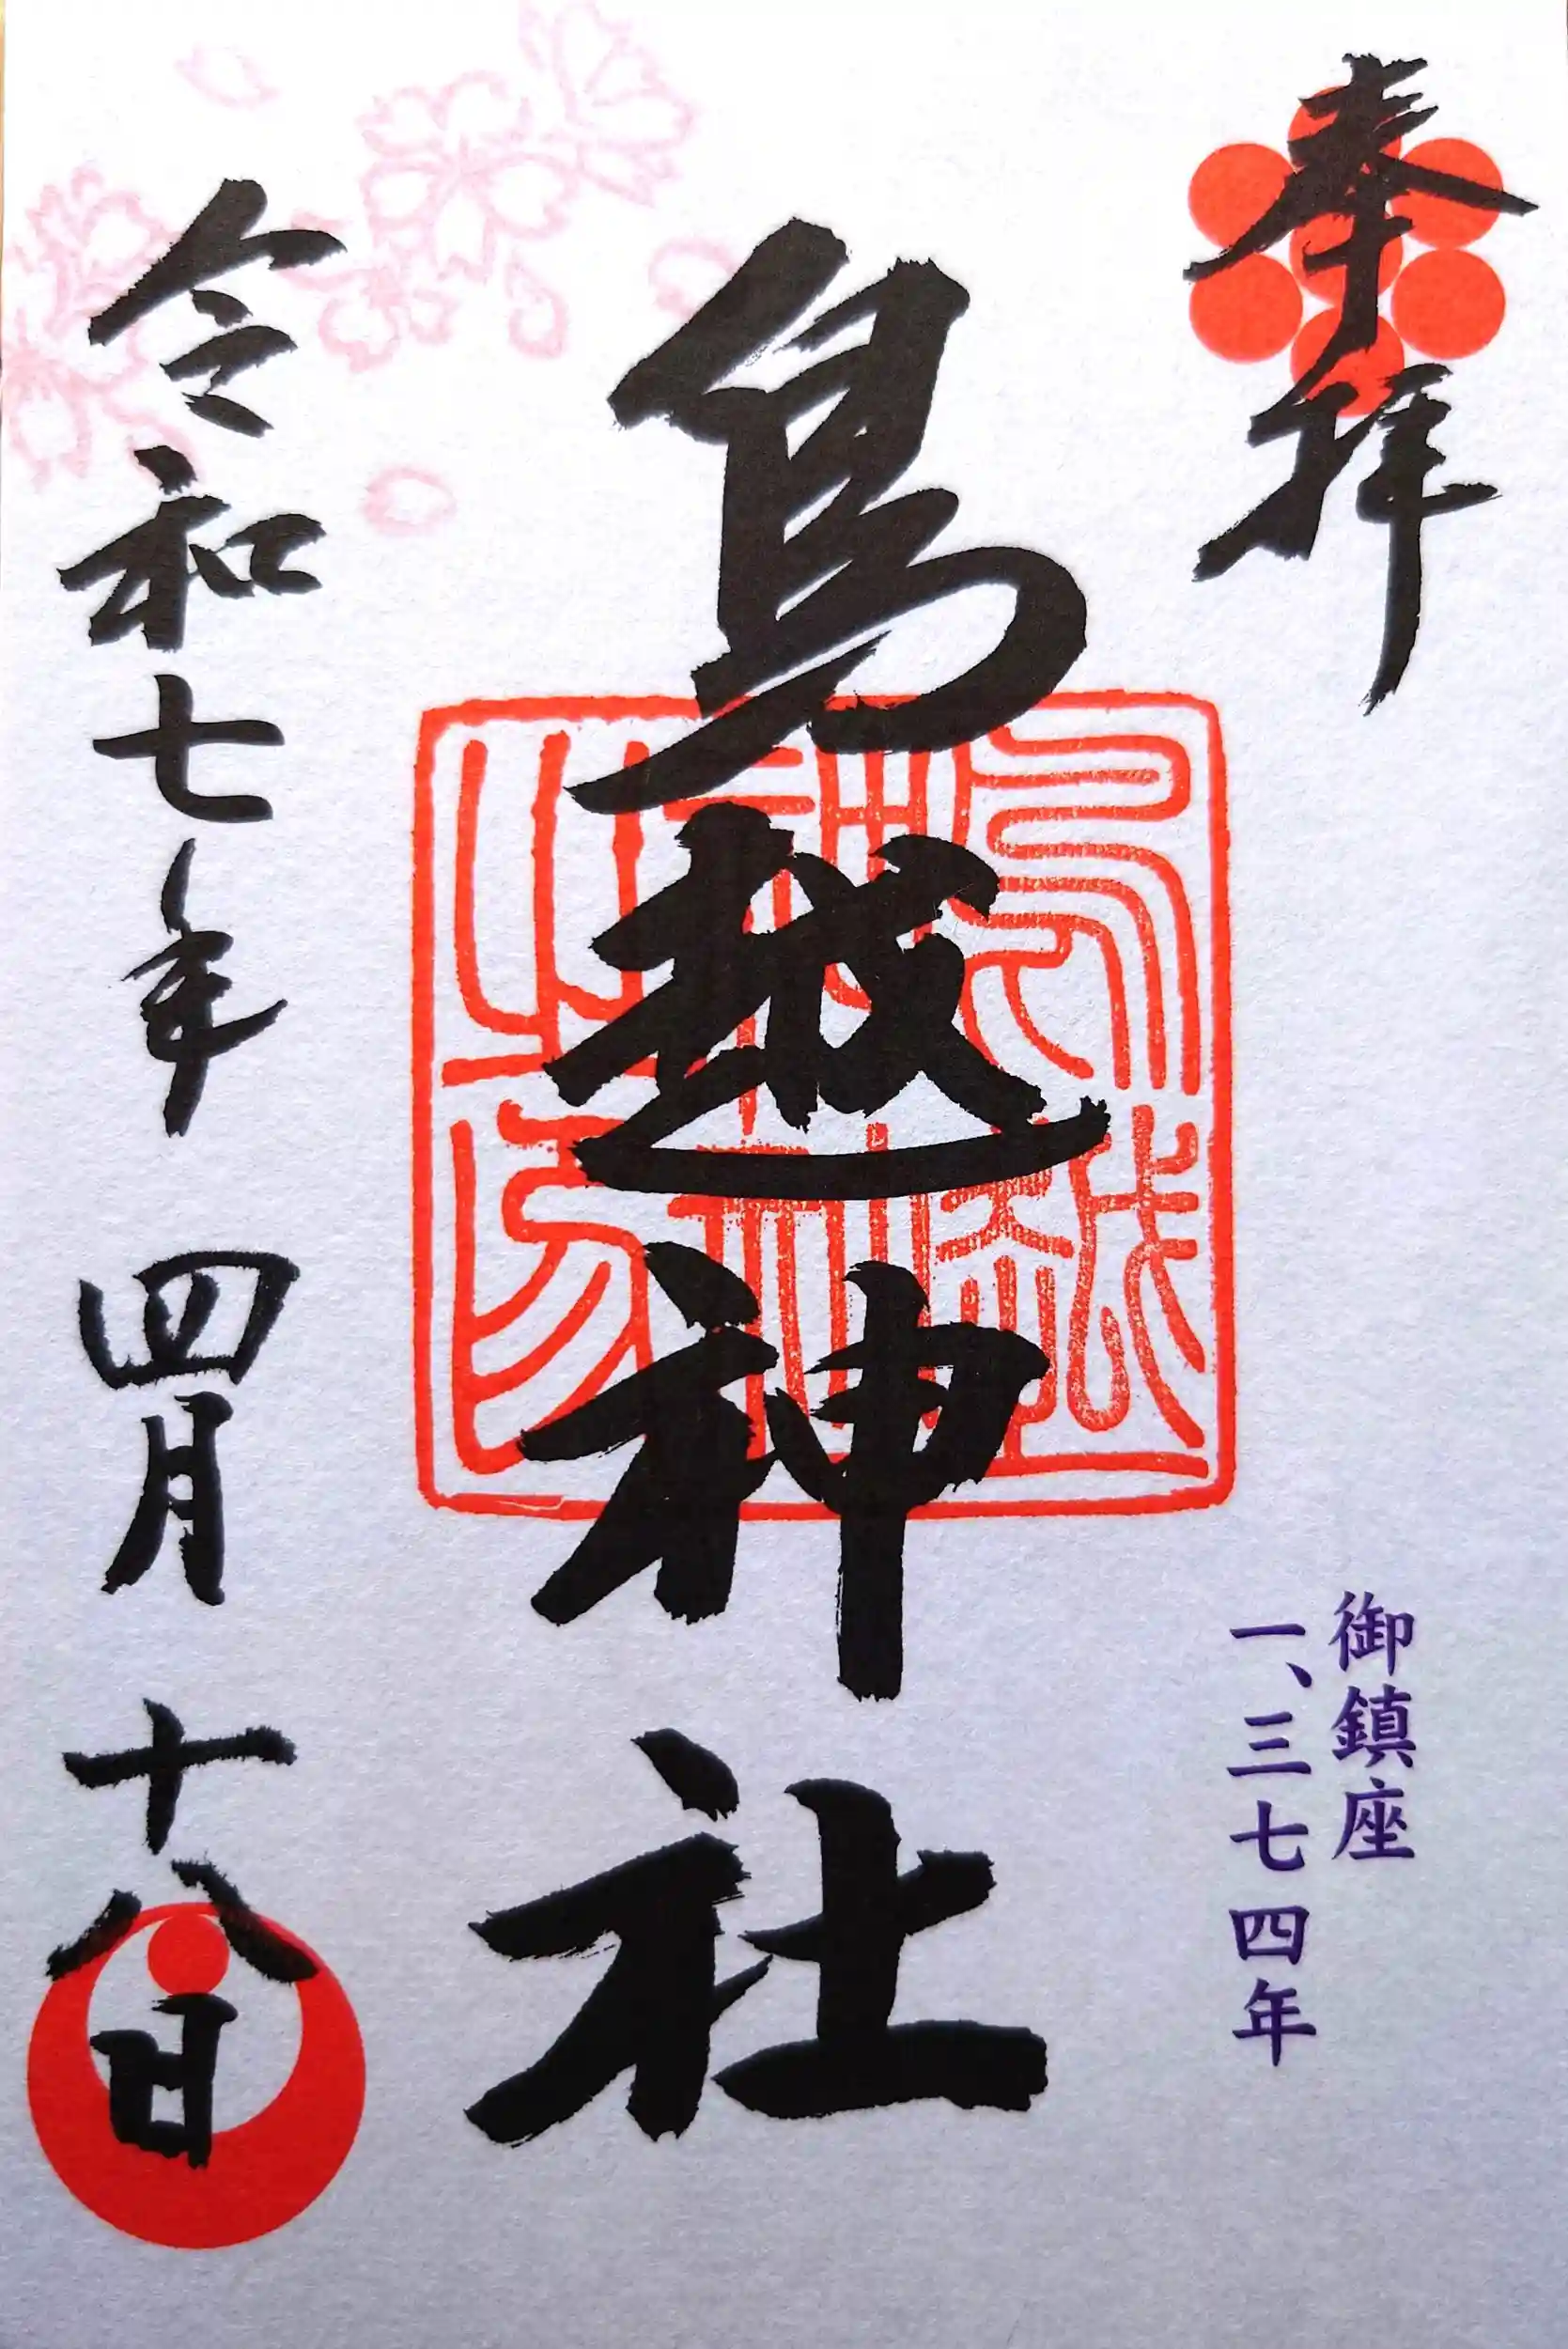 奉拝
御鎮座
一、三七四年
鳥越神社
鳥越
神社
之印
令和七年 四月 十八日